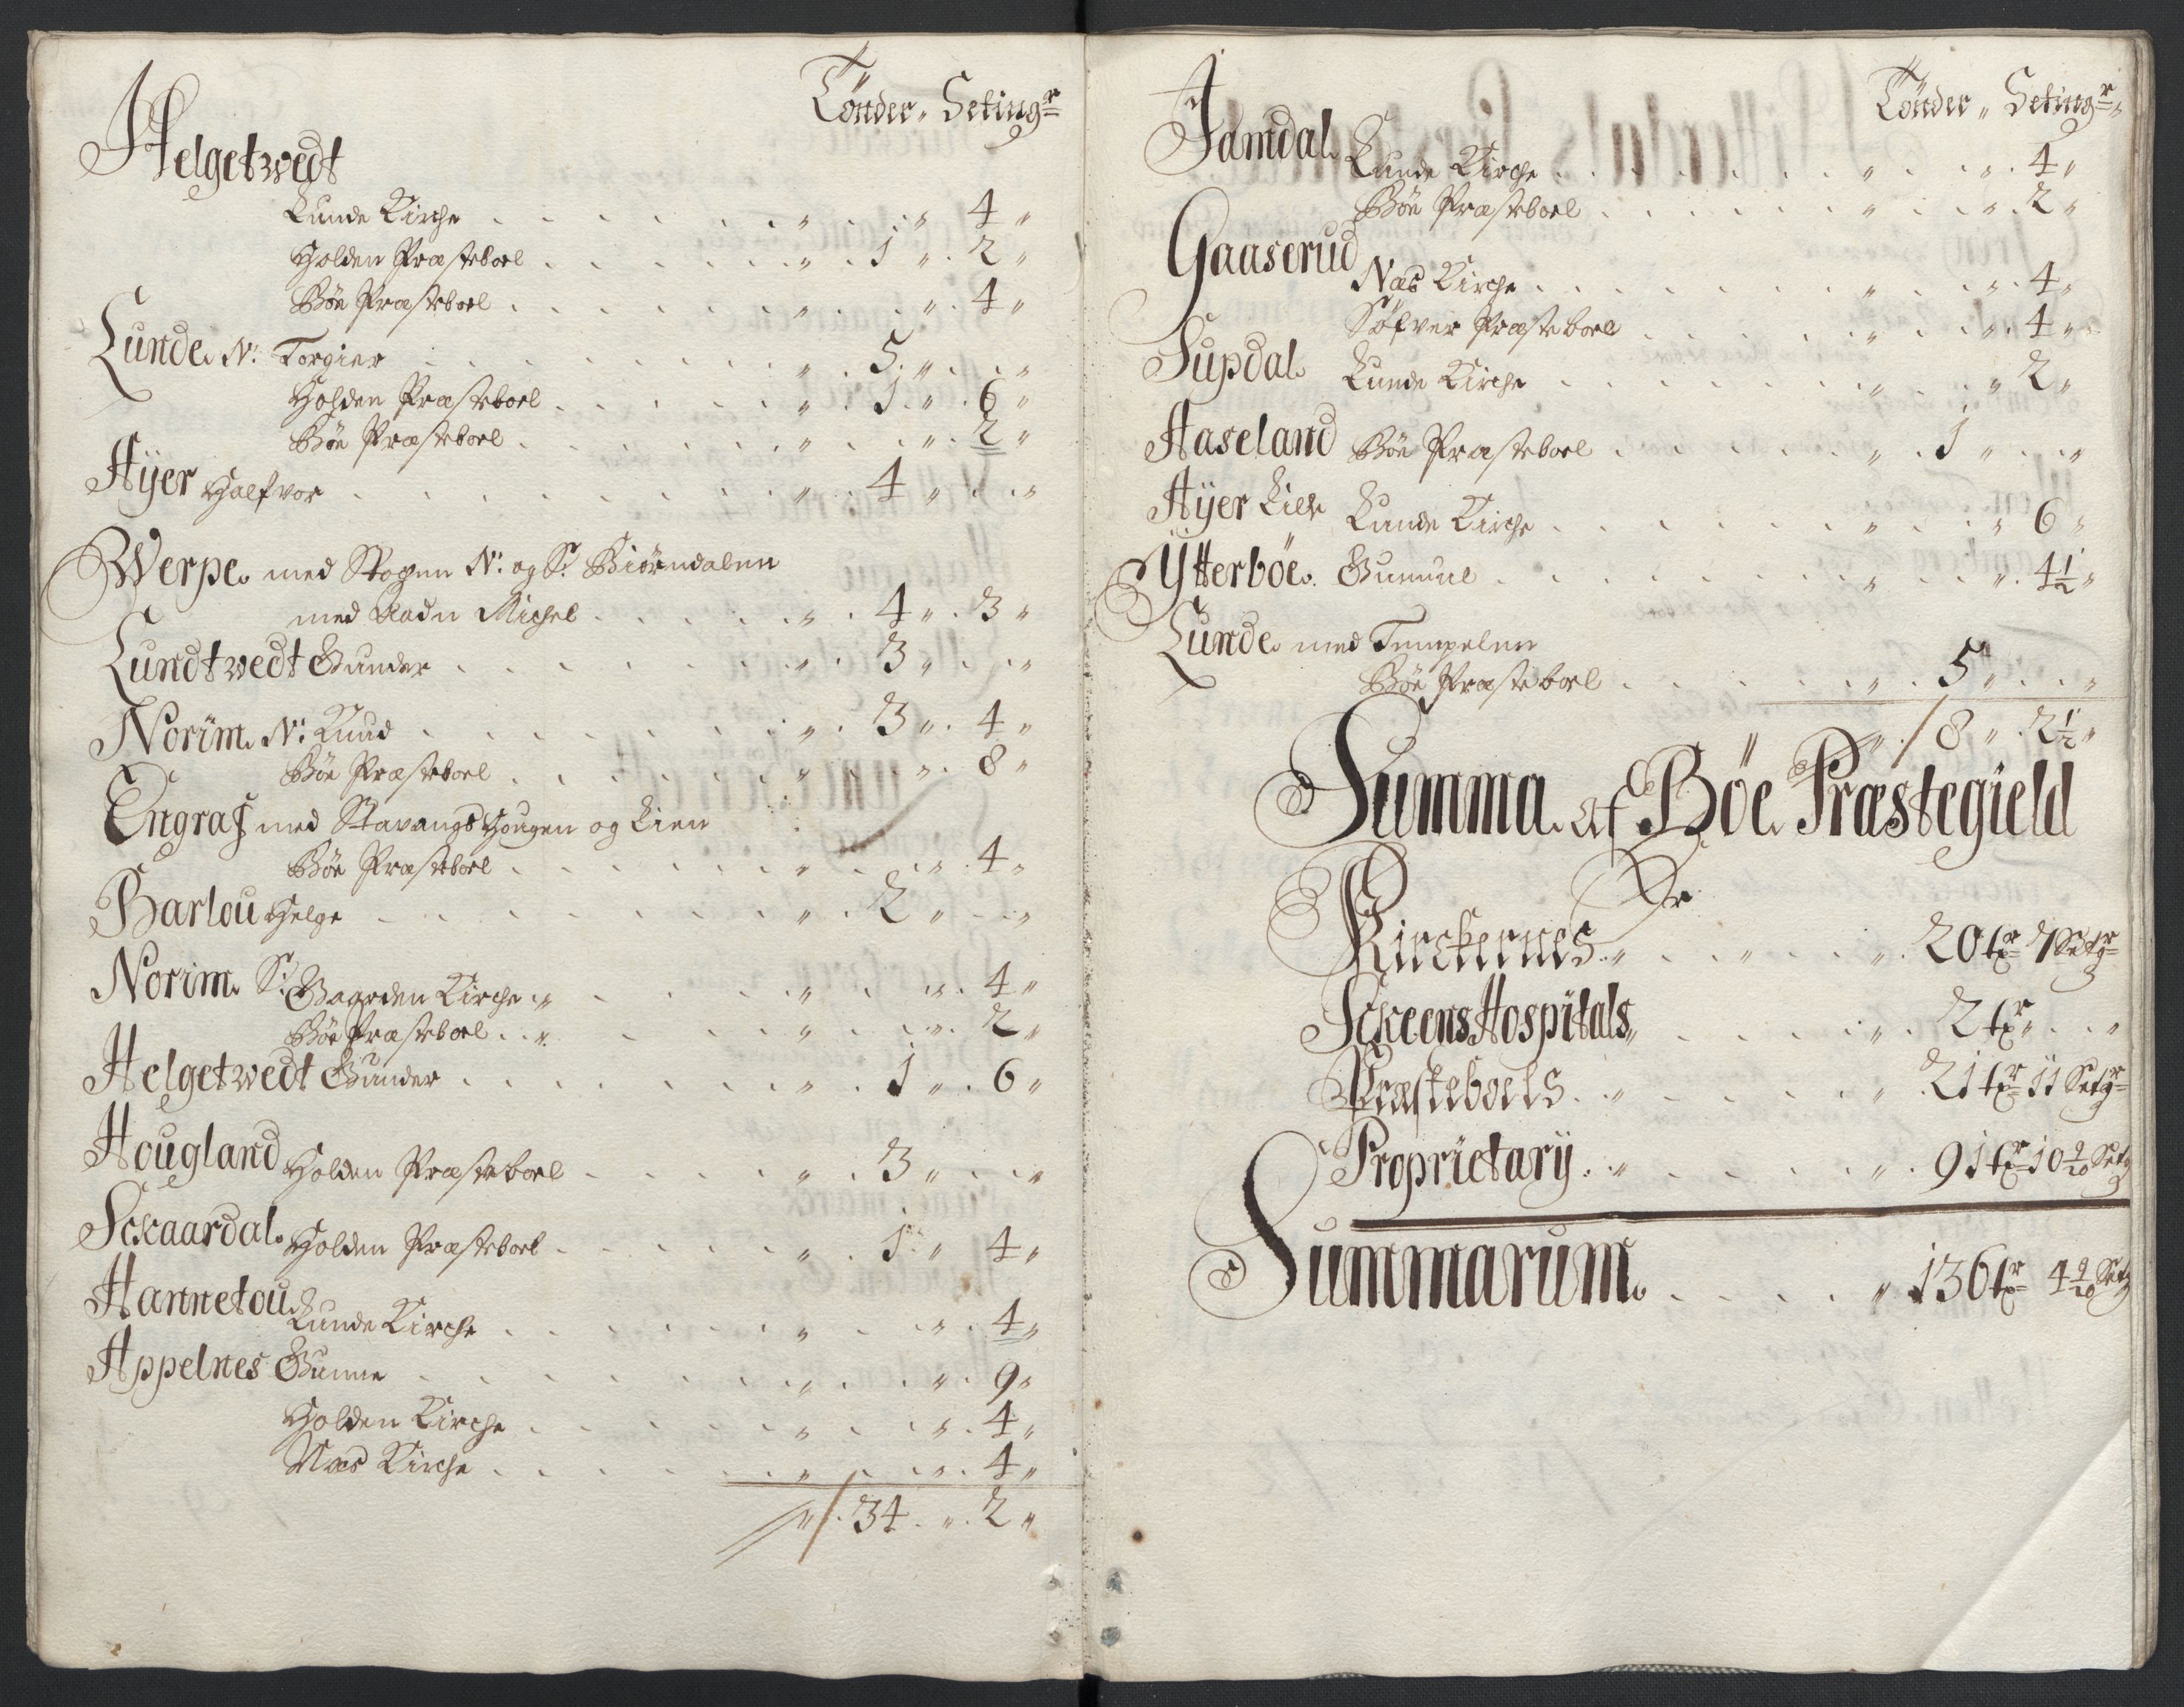 Tönder„ Setingr
Helgetwedt
Lunde Kirche . . . „ . . „ 4 „
Holden Præsteboel . . . „ . 1 „ . 2 „
Böe Præsteboel . . . „ . . „ . 4 „
Lunde. N: Torgier . . . „ . 5 „ . . „
Holden Præsteboel . . . „ . 1 „ . 6 „
Böe Præsteboel . . . „ . . „ . 2 „
Aÿer Halfvor . . . „ . 4 „ . . „
Werpe. med Skogen N: og S: Biörndalen
med Aadn Michel . . . „ . 4 „ . 3 „
Lundtwedt Gunder . . . „ . 3 „ . . „
Norim. N: Knud . . . „ . 3 „ . 4 „
Böe Præsteboel . . . „ . . „ . 8 „
Engraf med Stavangs Hougen og Lien
Böe Præsteboel . . . „ . . „ . 4 „
Barlou Helge . . . „ . 2 „ . . „
Norim. S: Gaarden Kirche „ . . . „ . . „ . 4 „
Böe Præsteboel . . „ . . . „ . . „ . 2 „
Helgetwedt Gunder . . . „ . 1 „ . 6 „
Hougland Holden Præsteboel . . . „ . 3 „ . . „
Sckaardal. Holden Præsteboel . . . „ . 1 „ 4 „
Hannetou Lunde Kirche . . . „ . . „ . 4 „
Appelnes Gunne . . . „ . . „ . 9 „
Holden Kirche . . . „ . . „ . 4 „
Næs Kirche . . . „ . . „ . 4 „
„ / . 34 . „ . 2 „
Tönder „ Setingr „
Jamdal. Lunde Kirche . . . „ . . „ . 4 „
Böe Præsteboel . . . „ . . „ . 2 „
Gaaserud Næs Kirche . . . „ . . „ . 4 „
Söfver Præsteboel . . . „ . . „ . 4 „
Supdal. Lunde Kirche . . . „ . . „ 2 „
Haseland Böe Præsteboel . . . „ . 1 „ . . „
Aÿer Lille Lunde Kirche . . . „ . . „ 6 „
Ytterböe. Gunnul . . . „ . . „ . 4 1/2 „
Lunde. med Tempelen
Böe Præsteboel . . . „ . 5 „ . . „
„ / 8 „ . 2 1/2 „
Summa. Af Böe. Præstegield
Er
Kirckernes . „ . . . „ . 20 tr 7 Setgr
Sckeens Hospitals „ . . . „ . 2 tr „ . . „
Præsteboels . „ . . . „ . 21 tr 11 Setgr
Proprietarÿ . „ . . . „ . 91 tr 10 9/20 Setg
Summarum. . . . . „ 136 tr 4 9/20 Setg